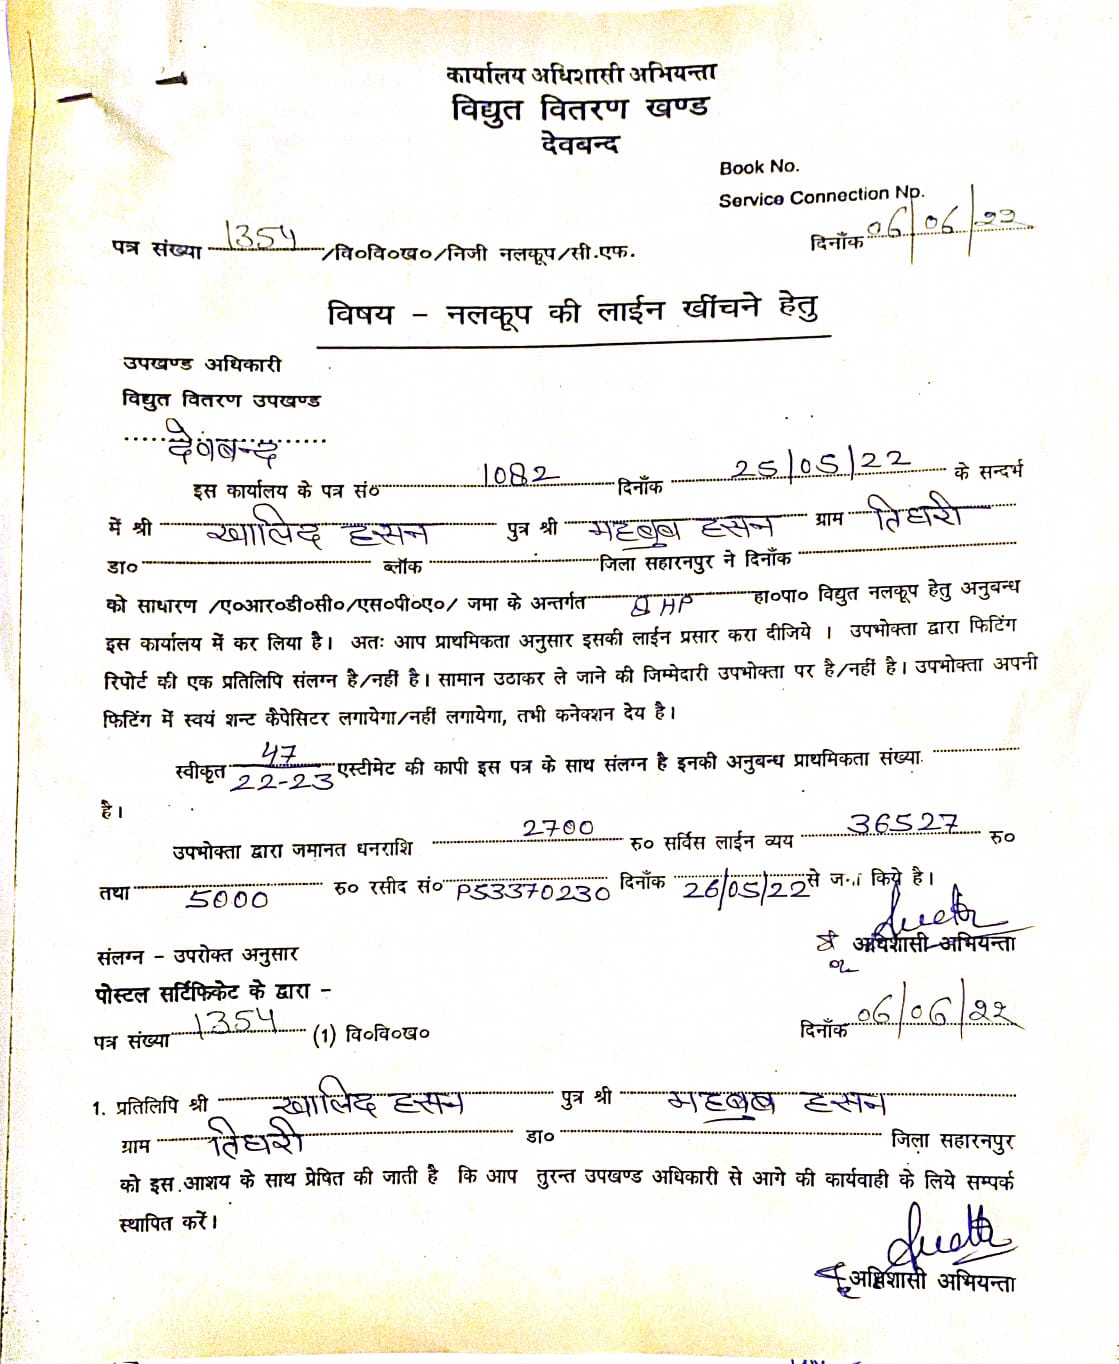 कार्यालय अधिशासी अभियन्ता
विद्युत वितरण खण्ड
देवबन्द
Book No.
Service Connection No.
पत्र संख्या 1354 /वि०वि०ख०/निजी नलकूप/सी.एफ. दिनाँक 06/06/22
विषय - नलकूप की लाईन खींचने हेतु
उपखण्ड अधिकारी
विद्युत वितरण उपखण्ड
देवबन्द
इस कार्यालय के पत्र सं० 1082 दिनाँक 25/05/22 के सन्दर्भ
में श्री खालिद हसन पुत्र श्री महबुब हसन ग्राम तिघरी
डा० ब्लॉक जिला सहारनपुर ने दिनाँक
को साधारण /ए०आर०डी०सी०/एस०पी०ए०/ जमा के अन्तर्गत HP हा०पा० विद्युत नलकूप हेतु अनुबन्ध
इस कार्यालय में कर लिया है। अतः आप प्राथमिकता अनुसार इसकी लाईन प्रसार करा दीजिये । उपभोक्ता द्वारा फिटिंग
रिपोर्ट की एक प्रतिलिपि संलग्न है/नहीं है। सामान उठाकर ले जाने की जिम्मेदारी उपभोक्ता पर है/नहीं है। उपभोक्ता अपनी
फिटिंग में स्वयं शन्ट कैपेसिटर लगायेगा/नहीं लगायेगा, तभी कनेक्शन देय है।
स्वीकृत 47/22-23 एस्टीमेट की कापी इस पत्र के साथ संलग्न है इनकी अनुबन्ध प्राथमिकता संख्या
है।
उपभोक्ता द्वारा जमानत धनराशि 2700 रु० सर्विस लाईन व्यय 36527 रु०
तथा 5000 रु० रसीद सं० P53370230 दिनाँक 26/05/22 से जमा किये है।
संलग्न - उपरोक्त अनुसार अधिशासी अभियन्ता
पोस्टल सर्टिफिकेट के द्वारा -
पत्र संख्या 1354 (1) वि०वि०ख० दिनाँक 06/06/22
1. प्रतिलिपि श्री खालिद हसन पुत्र श्री महबुब हसन
ग्राम तिघरी डा० जिला सहारनपुर
को इस आशय के साथ प्रेषित की जाती है कि आप तुरन्त उपखण्ड अधिकारी से आगे की कार्यवाही के लिये सम्पर्क
स्थापित करें।
अधिशासी अभियन्ता